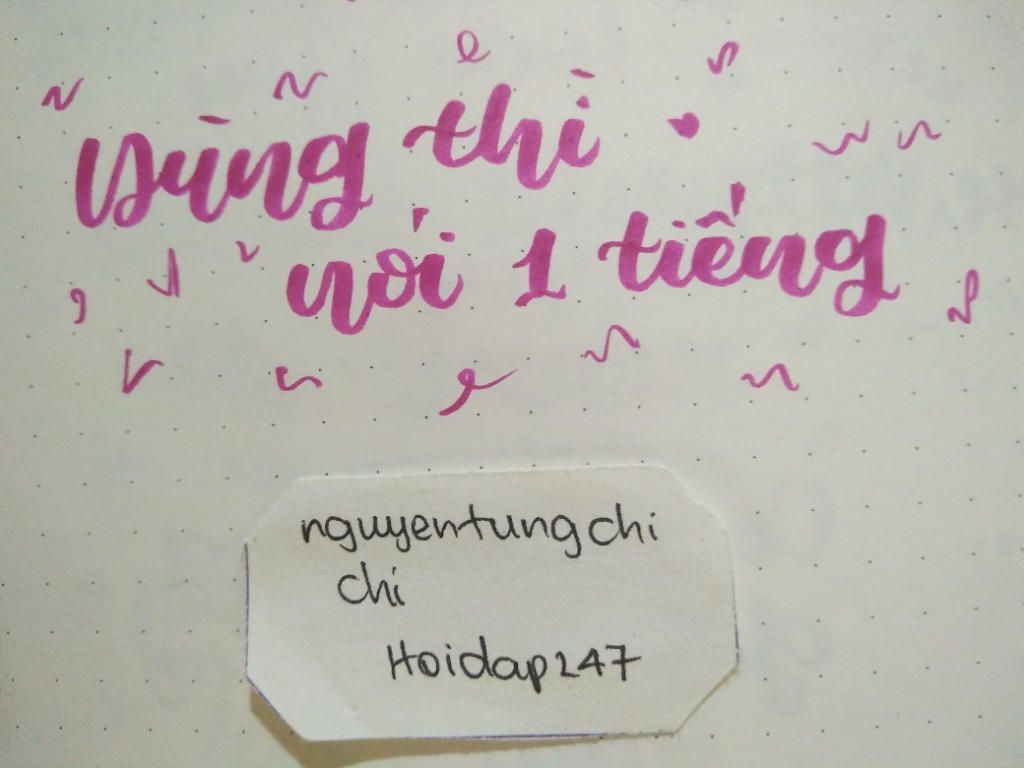 Dùng thì
nói 1 tiếng
nguyentungchi
chi
Hoidap247